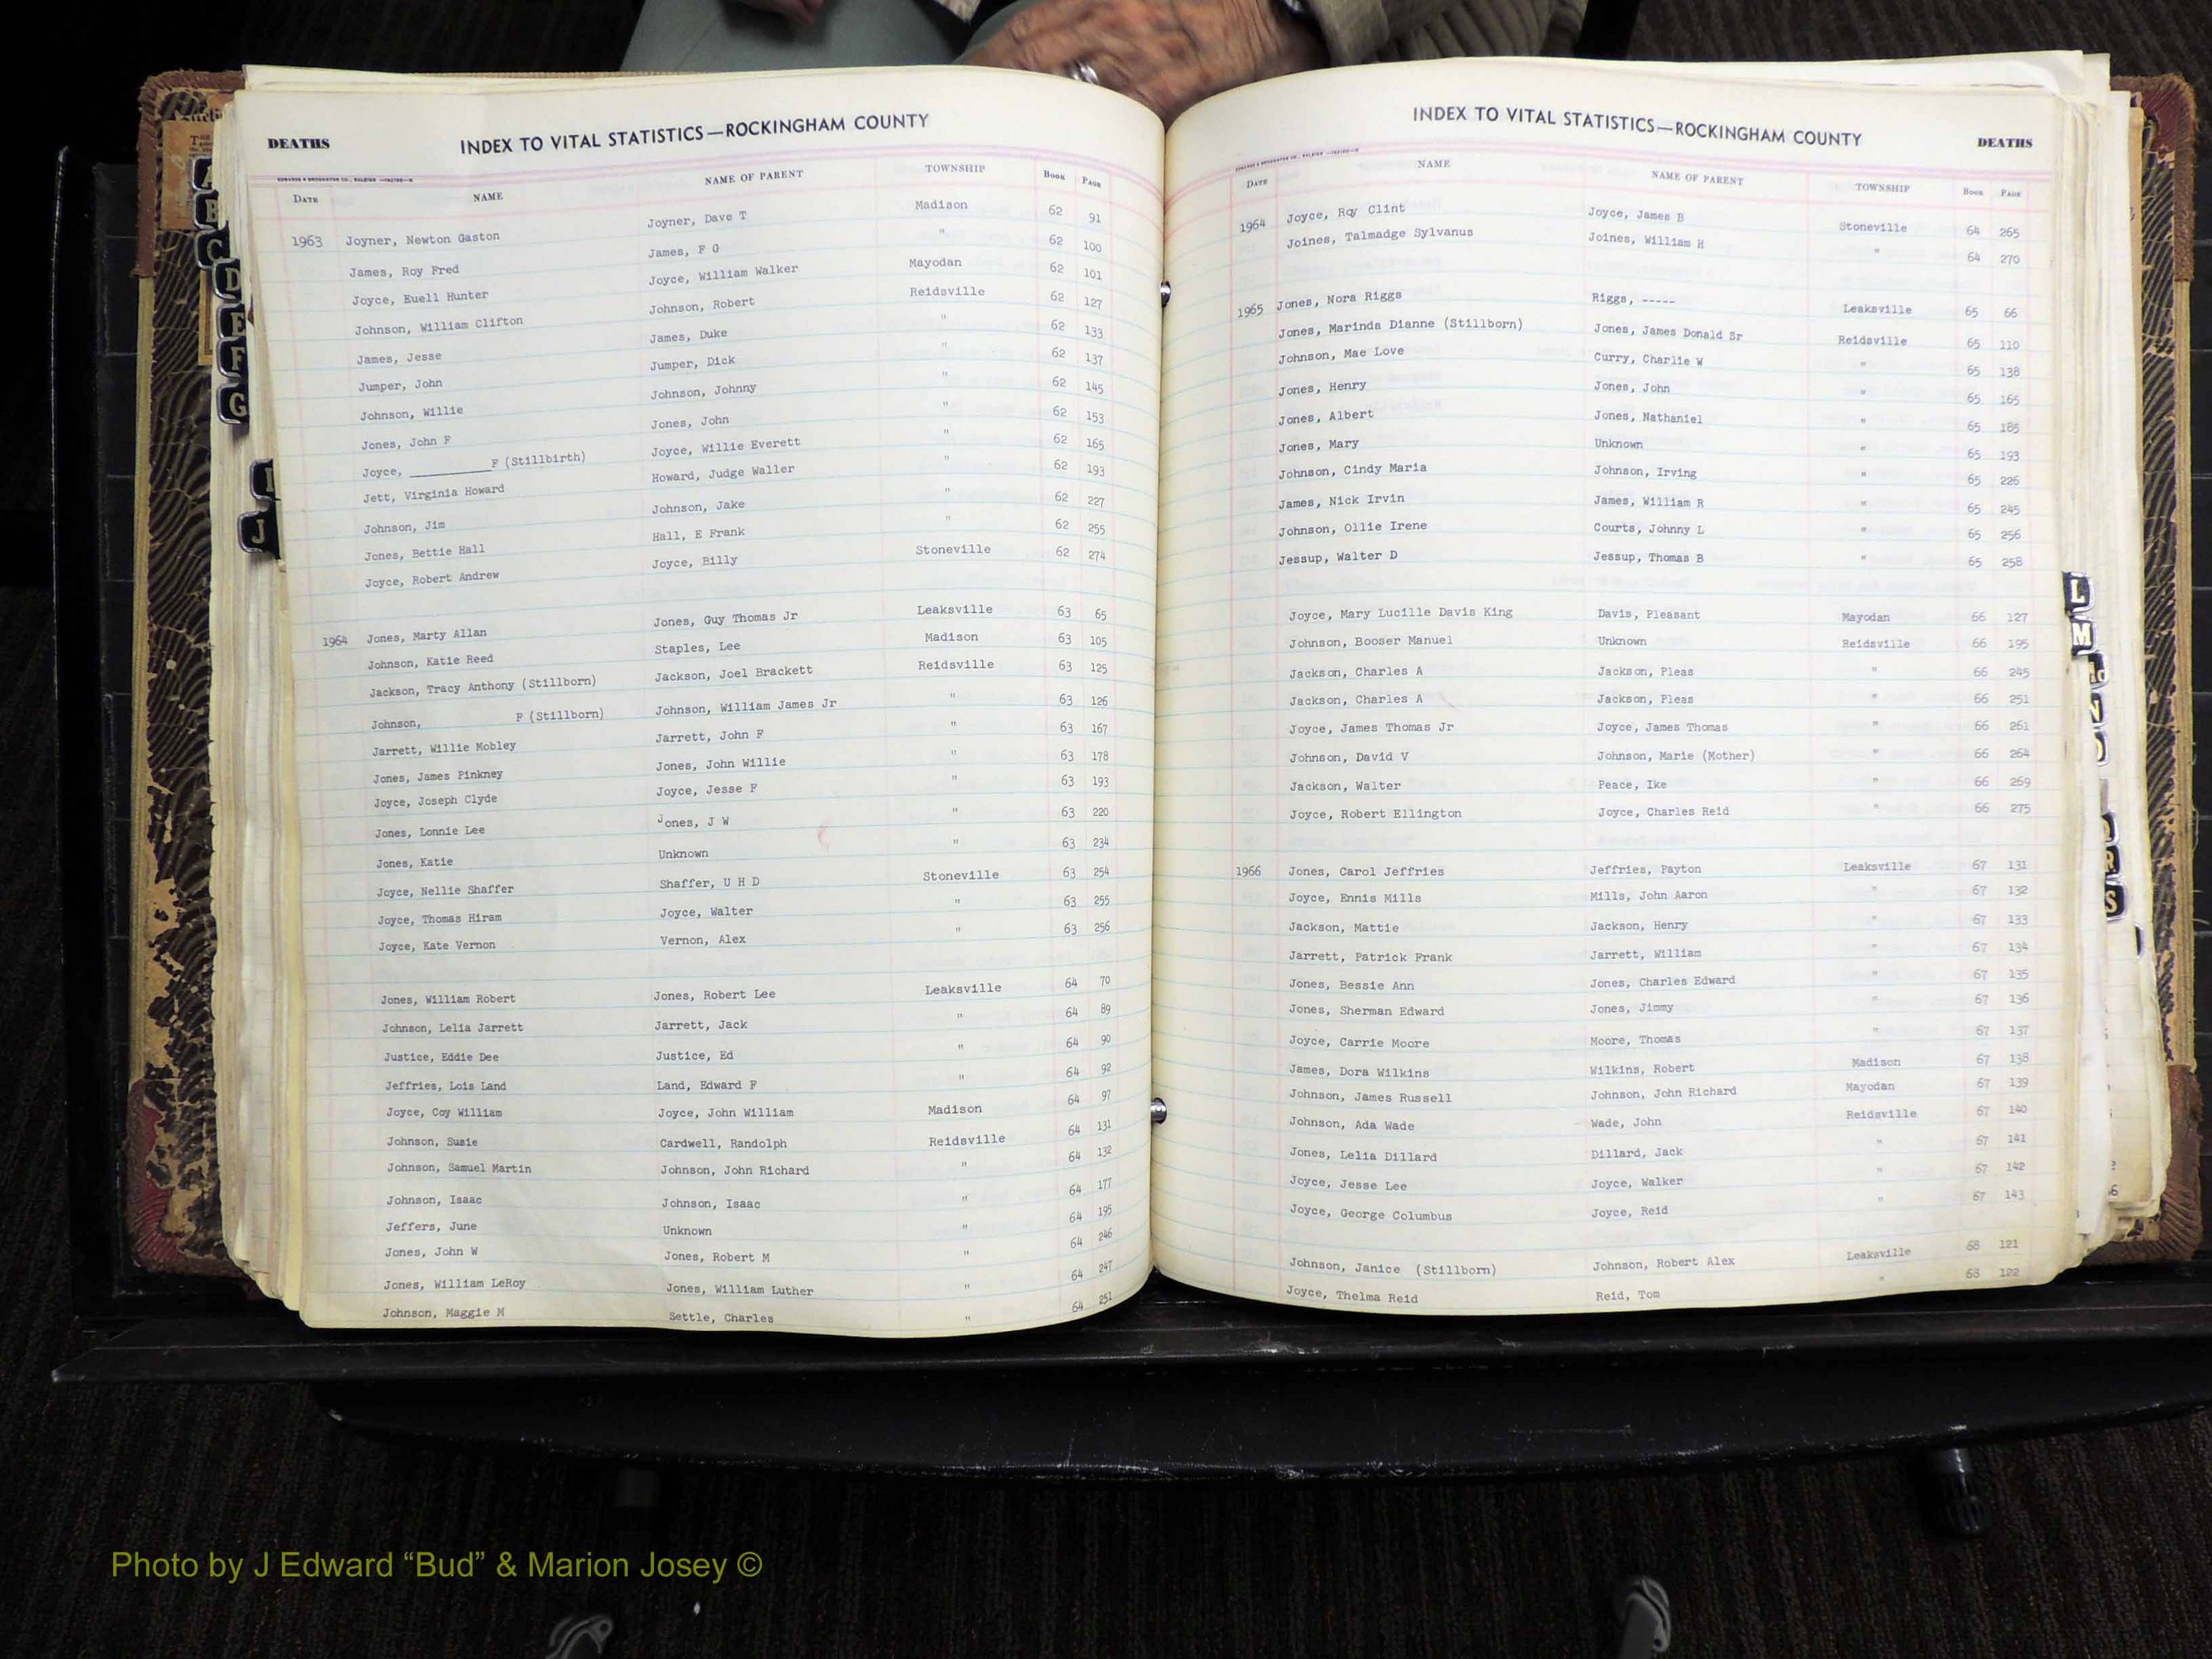 DEATHS INDEX TO VITAL STATISTICS—ROCKINGHAM COUNTY
DATE NAME NAME OF PARENT TOWNSHIP BOOK PAGE
1963 Joyner, Newton Gaston Joyner, Dave T Madison 62 91
James, Roy Fred James, F G " 62 100
Joyce, Euell Hunter Joyce, William Walker Mayodan 62 101
Johnson, William Clifton Johnson, Robert Reidsville 62 127
James, Jesse James, Duke " 62 133
Jumper, John Jumper, Dick " 62 137
Johnson, Willie Johnson, Johnny " 62 145
Jones, John F Jones, John " 62 153
Joyce, __________F (Stillbirth) Joyce, Willie Everett " 62 165
Jett, Virginia Howard Howard, Judge Waller " 62 193
Johnson, Jim Johnson, Jake " 62 227
Jones, Bettie Hall Hall, E Frank " 62 255
Joyce, Robert Andrew Joyce, Billy Stoneville 62 274
1964 Jones, Marty Allan Jones, Guy Thomas Jr Leaksville 63 65
Johnson, Katie Reed Staples, Lee Madison 63 105
Jackson, Tracy Anthony (Stillborn) Jackson, Joel Brackett Reidsville 63 125
Johnson, F (Stillborn) Johnson, William James Jr " 63 126
Jarrett, Willie Mobley Jarrett, John F " 63 167
Jones, James Pinkney Jones, John Willie " 63 178
Joyce, Joseph Clyde Joyce, Jesse F " 63 193
Jones, Lonnie Lee Jones, J W " 63 220
Jones, Katie Unknown " 63 234
Joyce, Nellie Shaffer Shaffer, U H D Stoneville 63 254
Joyce, Thomas Hiram Joyce, Walter " 63 255
Joyce, Kate Vernon Vernon, Alex " 63 256
Jones, William Robert Jones, Robert Lee Leaksville 64 70
Johnson, Lelia Jarrett Jarrett, Jack " 64 89
Justice, Eddie Dee Justice, Ed " 64 90
Jeffries, Lois Land Land, Edward F " 64 92
Joyce, Coy William Joyce, John William Madison 64 97
Johnson, Susie Cardwell, Randolph Reidsville 64 131
Johnson, Samuel Martin Johnson, John Richard " 64 132
Johnson, Isaac Johnson, Isaac " 64 177
Jeffers, June Unknown " 64 195
Jones, John W Jones, Robert M " 64 246
Jones, William LeRoy Jones, William Luther " 64 247
Johnson, Maggie M Settle, Charles " 64 251
INDEX TO VITAL STATISTICS—ROCKINGHAM COUNTY DEATHS
DATE NAME NAME OF PARENT TOWNSHIP BOOK PAGE
1964 Joyce, Roy Clint Joyce, James B Stoneville 64 265
Joines, Talmadge Sylvanus Joines, William H " 64 270
1965 Jones, Nora Riggs Riggs, ----- Leaksville 65 66
Jones, Marinda Dianne (Stillborn) Jones, James Donald Sr Reidsville 65 110
Johnson, Mae Love Curry, Charlie W " 65 138
Jones, Henry Jones, John " 65 165
Jones, Albert Jones, Nathaniel " 65 185
Jones, Mary Unknown " 65 193
Johnson, Cindy Maria Johnson, Irving " 65 226
James, Nick Irvin James, William R " 65 245
Johnson, Ollie Irene Courts, Johnny L " 65 256
Jessup, Walter D Jessup, Thomas B " 65 258
Joyce, Mary Lucille Davis King Davis, Pleasant Mayodan 66 127
Johnson, Booser Manuel Unknown Reidsville 66 195
Jackson, Charles A Jackson, Pleas " 66 245
Jackson, Charles A Jackson, Pleas " 66 251
Joyce, James Thomas Jr Joyce, James Thomas " 66 261
Johnson, David V Johnson, Marie (Mother) " 66 264
Jackson, Walter Peace, Ike " 66 269
Joyce, Robert Ellington Joyce, Charles Reid " 66 275
1966 Jones, Carol Jeffries Jeffries, Payton Leaksville 67 131
Joyce, Ennis Mills Mills, John Aaron " 67 132
Jackson, Mattie Jackson, Henry " 67 133
Jarrett, Patrick Frank Jarrett, William " 67 134
Jones, Bessie Ann Jones, Charles Edward " 67 135
Jones, Sherman Edward Jones, Jimmy " 67 136
Joyce, Carrie Moore Moore, Thomas " 67 137
James, Dora Wilkins Wilkins, Robert Madison 67 138
Johnson, James Russell Johnson, John Richard Mayodan 67 139
Johnson, Ada Wade Wade, John Reidsville 67 140
Jones, Lelia Dillard Dillard, Jack " 67 141
Joyce, Jesse Lee Joyce, Walker " 67 142
Joyce, George Columbus Joyce, Reid " 67 143
Johnson, Janice (Stillborn) Johnson, Robert Alex Leaksville 68 121
Joyce, Thelma Reid Reid, Tom " 68 122
A
B
C
D
E
F
G
I
J
L
M
N
O
R
S
Photo by J Edward “Bud” & Marion Josey ©